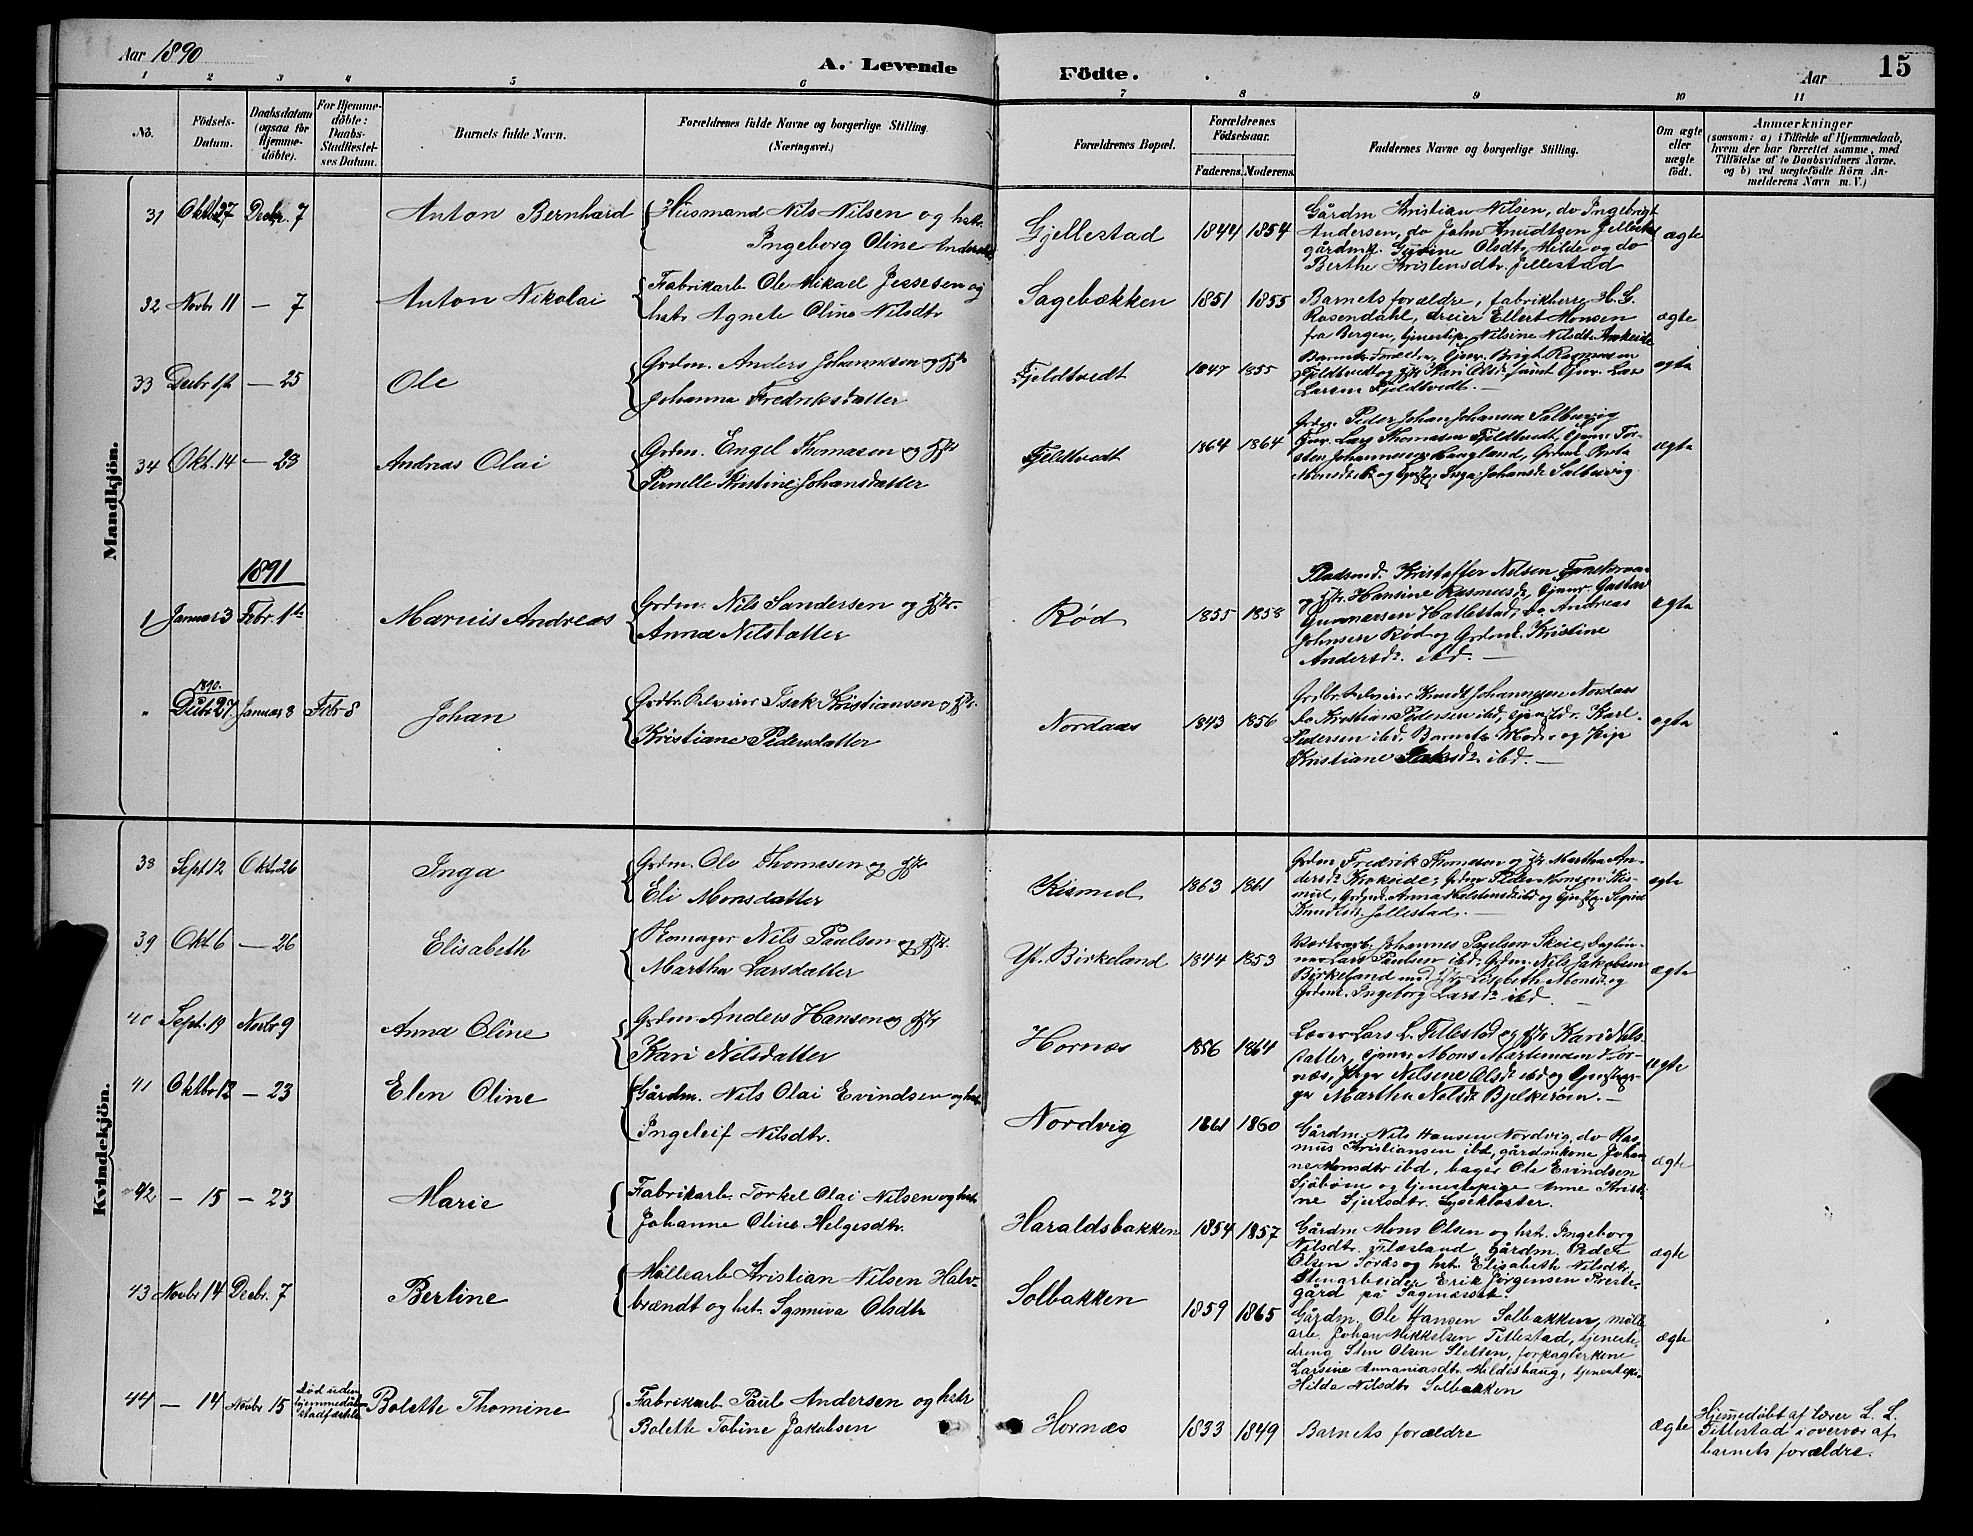 Aar 1890
A. Levende
Födte.
Aar
15
1 2 3 4 5 6 7 8 9 10 11
No.
Födsels-
Datum.
Daabsdatum
(ogsaa for
Hjemme-
döbte).
For Hjemme-
döbte:
Daabs-
Stadfæstel-
ses Datum.
Barnets fulde Navn.
Forældrenes fulde Navne og borgerlige Stilling
(Næringsvei.)
Forældrenes Bopæl.
Forældrenes
Födselsaar.
Faderens. Moderens.
Faddernes Navne og borgerlige Stilling.
Om ægte
eller
uægte
födt.
Anmærkninger
(saasom: a) i Tilfælde af Hjemmedaab,
hvem der har forrettet samme, med
Tilföielse af to Daabsvidners Navne.
og b) ved uægtefödte Börn An-
melderens Navn m. V.)
Mandkjön.
31 Oktbr 27 Decbr. 7 Anton Bernhard
Husmand Nils Nilsen og hst.
Ingeborg Oline Andersdtr
Gjellestad 1844 1854
Gårdm Kristian Nilsen, do Ingebrigt
Andersen, do John Knudtsen Jellestad
gårdmk. Gurine Olsdtr Milde og do
Berthe Kristensdtr. Jellestad
ægte
32 Novbr 11 — 7 Anton Nikolai
Fabrikarb. Ole Mikael Jessesen og
hstr Agnete Oline Nilsdtr
Sagebækken 1851 1855
Barnets forældre, fabrikherre H. G.
Rosendahl, dreier Ellert Monsen
fra Bergen, tjenestep. Nilsine Nilsdtr
ægte
33 Decbr 1ste — 25 Ole
Grdm. Anders Johannesen og Hst
Johanna Fredriksdatter
Fjeldtvedt 1847 1855
Larsen Fjeldtvedt. —
ægte
34 Okt. 14 — 28 Andreas Olai
Grdm. Engel Thomasen og Hst
Pernelle Kristine Johansdatter
Fjeldtvedt 1864 1864
Grdm. Peder Johan Johansen Salbuvig
Lars Thomasen Fjeldtvedt, Tor-
sten Johannesen Haugland,
Inga Johansdr Salbuvig
ægte
1891
1 Januar 3 Febr. 1ste Marius Andreas
Grdm. Nils Sandersen og Hstr.
Anna Nilsdatter
Rød 1855 1858
Pladsmd. Kristoffer Nilsen
og Hstr. Hansine Rasmusdr, Gustav
Gunnersen Hatlestad, do Andreas
Johnsen Rød og Grdmk. Kristine
Andersdr. ibd. —
ægte
" 1890. Decbr 27. Januar 8 Febr 8 Johan
Isak Kristiansen og Hstr.
Kristiane Pedersdatter
Nordaas 1843 1856
Knudt Johannesen Nordaas
do Kristian Pedersen ibd, Karl
Pedersen ibd, Barnets Moder og Pige
Kristiane Isaksdr ibd. —
ægte
Kvindekjön.
38 Sept 12 Okt. 26 Inga
Grdm. Ole Thomasen og Hst
Eli Monsdatter
Kismul 1863 1861
Grdm Fredrik Thomasen og Hstr Martha An-
dersdr Krokeide, Grdm Peder Monsen Kis-
mul,
Knudtsdr. Jellestad. —
ægte
39 Okt 6 — 26 Elisabeth
Skomager Nils Paulsen og Hst.
Martha Larsdatter
Yt. Birkeland 1844 1853
Johannes Paulsen Skeie, Daglön-
ner Lars Paulsen ibd, Grdm. Nils Jakobsen
Birkeland med Hstr Lisabeth Monsdr og
Grdmk. Ingeborg Larsdr ibd.
ægte
40 Sept. 19 Novbr 9 Anna Oline
Grdm. Anders Hansen og Hst
Kari Nilsdatter
Hornæs 1856 1864
Lærer Lars L. Titlestad og Hstr Kari Nils-
datter, Mons Martinusen Hor-
næs, Pige Nilsine Olsdr ibd og
Martha Nilsdr Bjelkeröen. —
ægte
41 Oktbr 12 — 23 Elen Oline
Gårdm. Nils Olai Evindsen og hst
Ingeleif Nilsdtr.
Nordvig 1861 1860
Gårdm. Nils Hansen Nordvig, do Ras-
mus Kristiansen ibd, gårdmkone Johan-
ne Monsdtr ibd, bager Ole Evindsen
Sjöbörn og tjenestepige Anne Kristi-
ne Sjursdtr. Lysekloster.
ægte
42 — 15 — 23 Marie
Fabrikarb. Torkel Olai Nilsen og hst.
Johanne Oline Helgesdtr.
Haraldsbakken 1854 1857
Gårdm Mons Olsen og hst. Ingeborg
Nilsdtr. Flæsland, gårdm. Peder
Olsen Söräs og hst. Elisabeth Nilsdtr.
Stenarbeider Erik Jörgensen Preste-
gård på Sagenæsset.
ægte
43 Novbr 14 Decbr. 7 Bertine
Möllearb Kristian Nilsen Halv-
brændt og hst. Synneva Olsdtr
Solbakken 1859 1865
Gårdm. Ole Hansen Solbakken, mölle-
arb. Johan Mikkelsen Titlestad, tjeneste-
dreng Sten Olsen Sletten, forpagterkone
Larsine Annaniasdtr Mildeshaug, tjenestepi.
Hilda Nilsdtr Solbakken
ægte
44 — 14 Novbr 15 Död uden
hjemmedåbens
stadfæstelse
Bolette Thomine
Fabrikarb Paul Andersen og hstr
Bolette Tobine Jakobsen
Hornæs 1833 1849 Barnets forældre
ægte
Hjemedöbt af lærer L. L.
Titlestad i overvær af
barnets forældre.